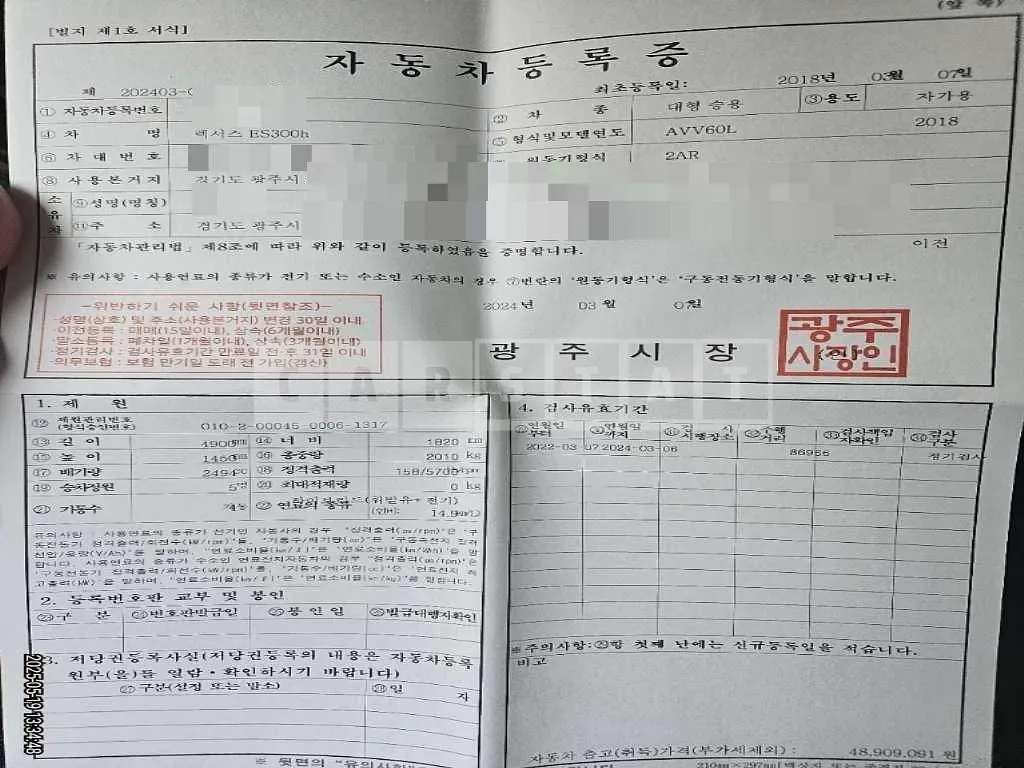 [별지 제1호 서식]
(앞 쪽)
자동차등록증
제 202403-0
최초등록일: 2018년 03월 07일
① 자동차등록번호
② 차 종 대형 승용
③용도 자가용
④ 차 명 렉서스 ES300h
⑤ 형식및모델연도 AVV60L 2018
⑥ 차 대 번 호
원동기형식 2AR
⑧ 사용본거지 경기도 광주시
소유자 ⑨성명(명칭)
주 소 경기도 광주시
「자동차관리법」 제8조에 따라 위와 같이 등록하였음을 증명합니다.
이전
※ 유의사항 : 사용연료의 종류가 전기 또는 수소인 자동차의 경우 ⑦번란의 '원동기형식'은 '구동전동기형식'을 말합니다.
2024년 03월 07일
-위반하기 쉬운 사항(뒷면참조)-
·성명(상호) 및 주소(사용본거지) 변경 30일 이내
·이전등록 : 매매(15일이내), 상속(6개월이내)
·말소등록 : 폐차일(1개월이내), 상속(3개월이내)
·정기검사 : 검사유효기간 만료일 전·후 31일 이내
·의무보험 : 보험 만기일 도래 전 가입(갱신)
광 주 시 장 (인)
광주
시장인
CARSTAT
1. 제 원
⑫ 제원관리번호
(형식승인번호) 010-2-00045-0006-1317
⑬ 길 이 4900mm ⑭ 너 비 1820
⑮ 높 이 1450mm ⑯ 총중량 2010 kg
⑰ 배기량 2494cc ⑱ 정격출력 158/5700rpm
⑲ 승차정원 5명 ⑳ 최대적재량 0 kg
㉑ 기통수 4기통 ㉒ 연료의 종류 하이브리드(휘발유+전기)
(연비: 14.9㎞/ℓ)
유의사항 : 사용연료의 종류가 전기인 자동차의 경우 '정격출력(ps/rpm)'은 '구
동전동기 정격출력/회전수(kW/rpm)'를, '기통수/배기량(cc)'은 '구동축전지 정격
전압/용량(V/Ah)'을 말하며, '연료소비율(km/ℓ)'은 '연료소비율(km/kWh)'을 말
합니다. 사용연료의 종류가 수소인 연료전지자동차의 경우 '정격출력(ps/rpm)'은
'구동전동기 정격출력/회전수(kW/rpm)'를, '기통수/배기량(cc)'은 '연료전지 최
고출력(kW)'을 말하며, '연료소비율(km/ℓ)'은 '연료소비율(km/kg)'을 말합니다.
2. 등록번호판 교부 및 봉인
구 분 번호판발급일 봉인일 발급대행자확인
3. 저당권등록사실(저당권등록의 내용은 자동차등록
원부(을)를 열람·확인하시기 바랍니다)
구분(설정 또는 말소) 일 자
※ 뒷면의 "유의사항"
4. 검사유효기간
연월일부터 연월일까지 검 사 시행장소 주행거리 검사책임자확인 검사구분
2022-03-07 2024-03-06 86956 정기검사
※주의사항:㉙항 첫째 난에는 신규등록일을 적습니다.
비고
자동차 출고(취득)가격(부가세제외) : 48,909,091 원
210㎜×297㎜[백상지